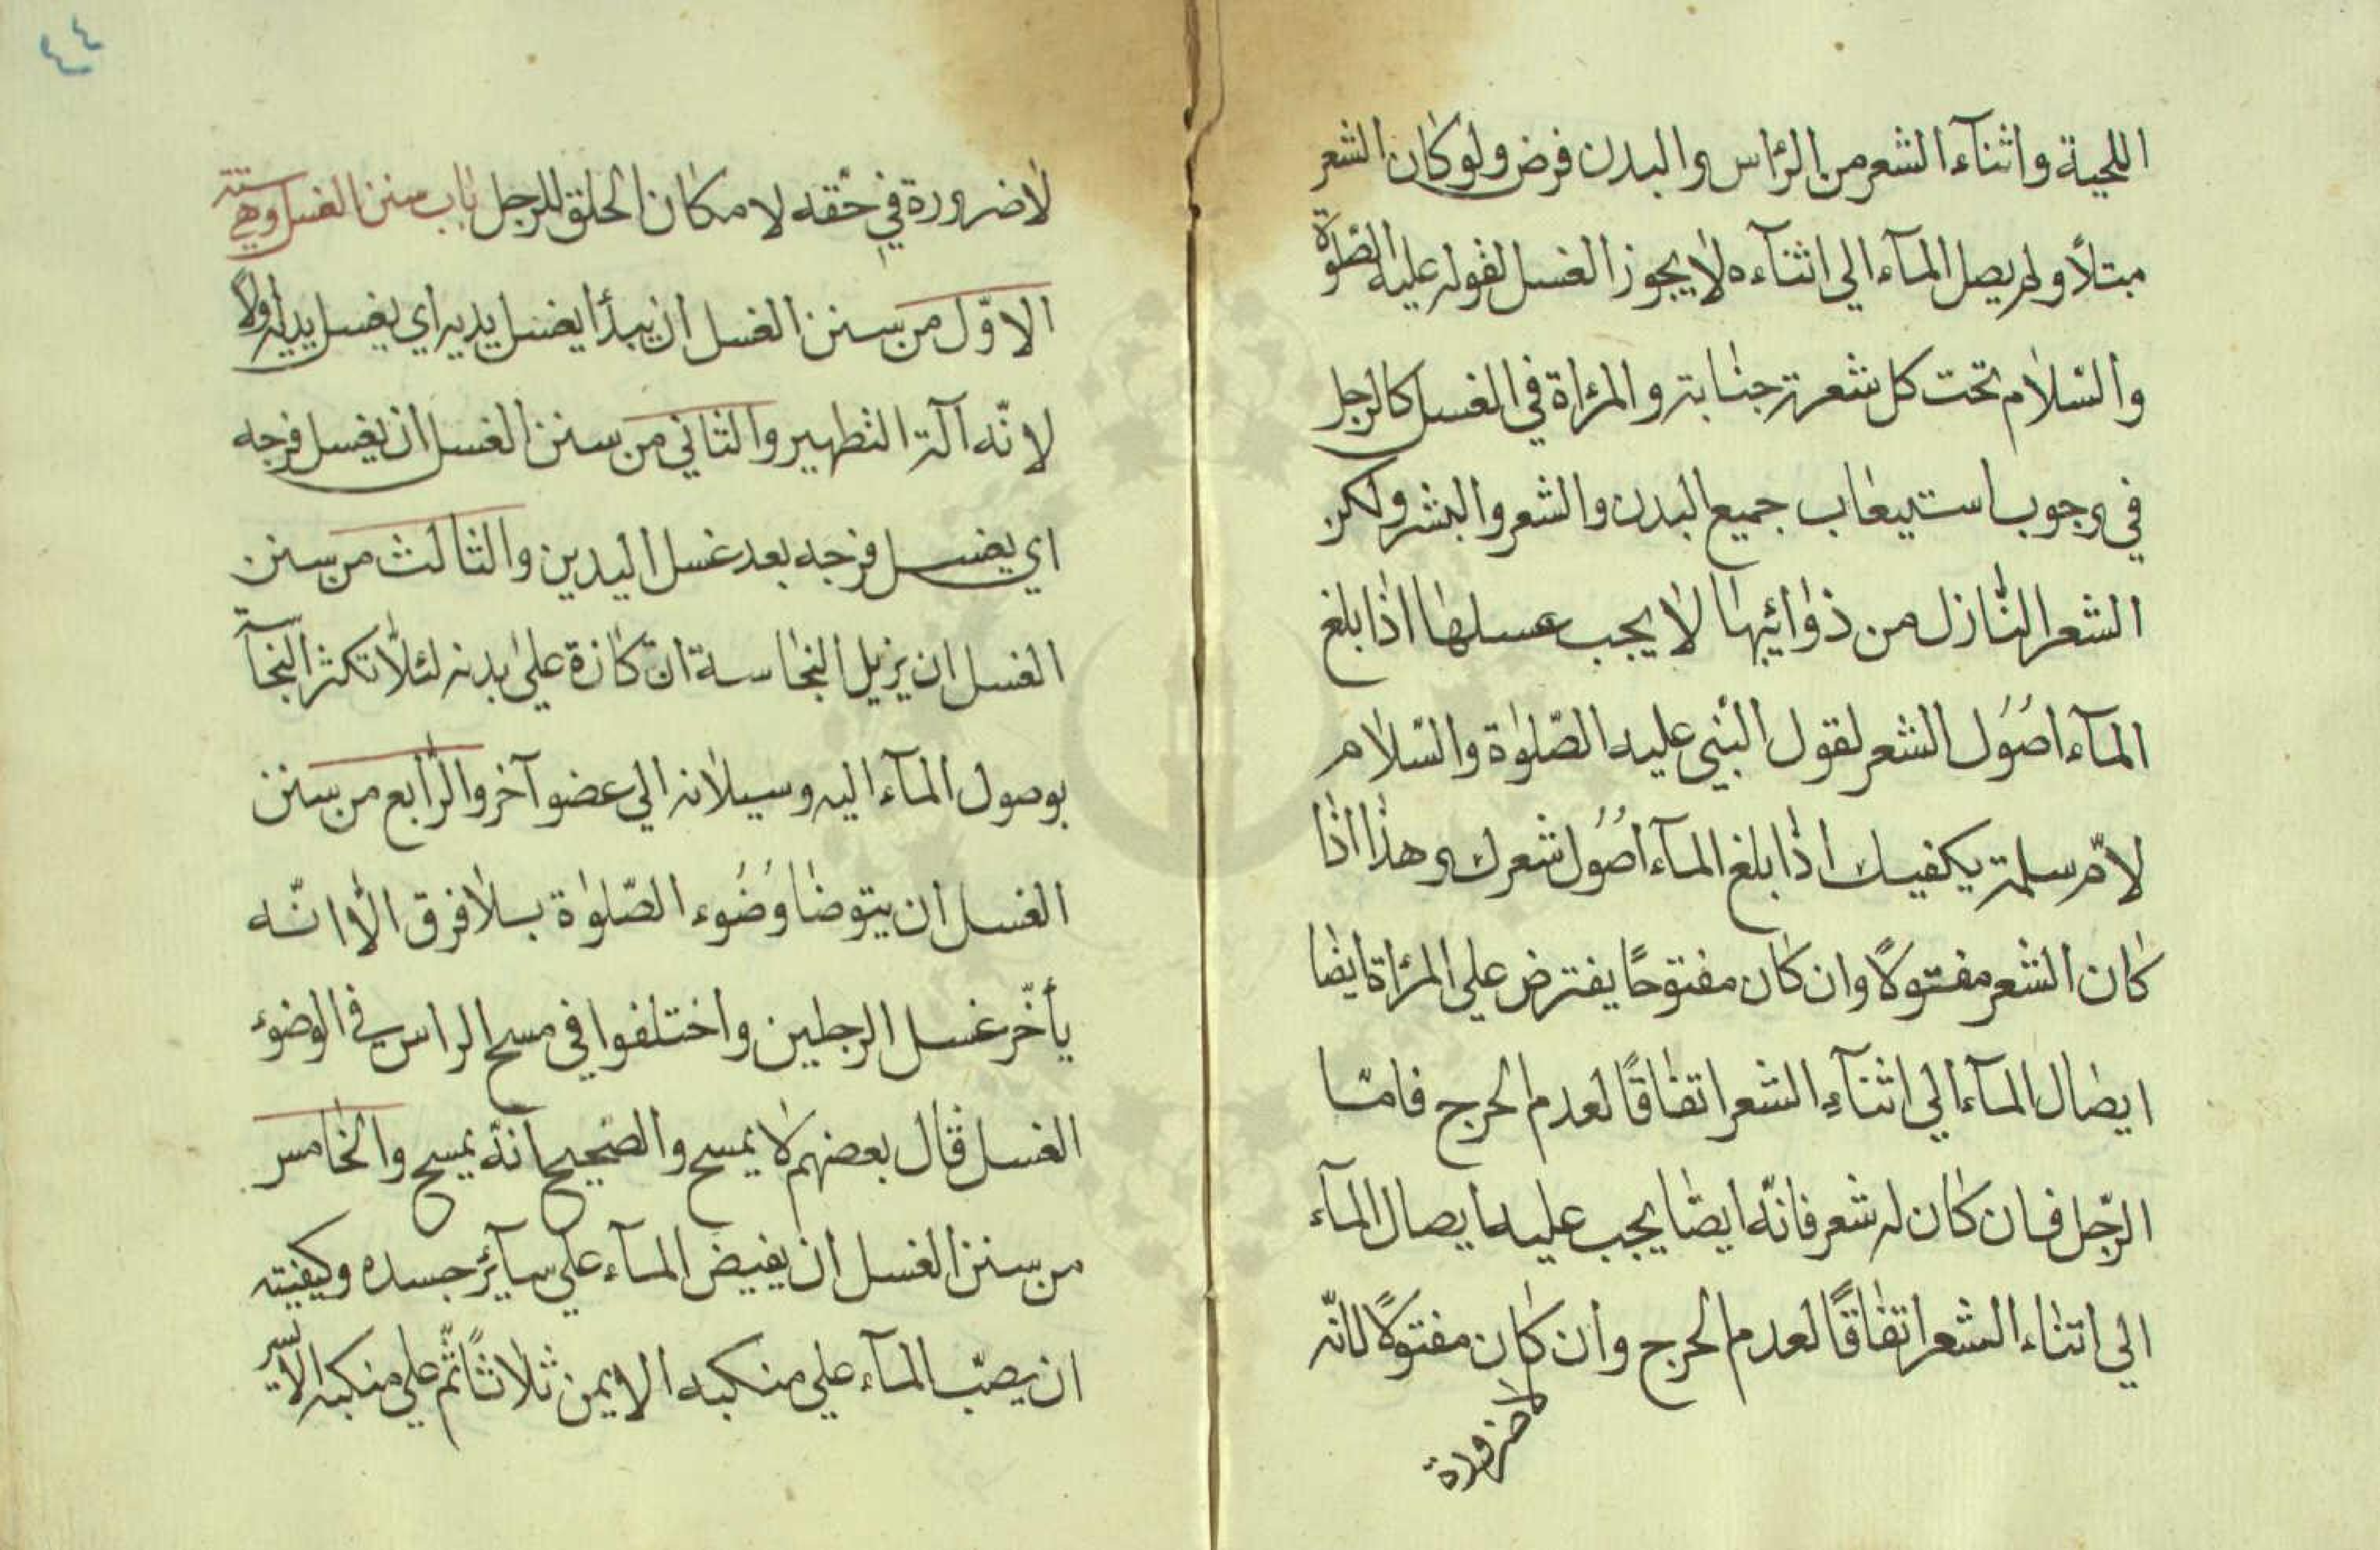 اللحية واثنآء الشعر من الرّأس والبدن فرض ولو كان الشعر
مبتلأ ولم يصل المآء الي اثنآءه لا يجوز الغسل لقوله عليه الصّلوة
والسّلام تحت كل شعرة جنابة والمرأة في الغسل كالرجل
في وجوب استيعاب جميع البدن والشعر والبشر ولكن
الشعر النّازل من ذوائبها لا يجب عسلها اذا بلغ
المآء اصُوُل الشعر لقول النّبي عليه الصّلوة والسّلام
لامّ سلمة يكفيك اذا بلغ المآء اصُوُل شعرك وهذا اذا
كان الشعر مفتولًا وان كان مفتوحًا يفترض علي المرأة ايضا
ايصال المآء الي اثنآءِ الشعر اتفاقًا لعدم الحرج فامّا
الرّجل فان كان له شعر فانّه ايضًا يجب عليه ايصال المآء
الي اثناء الشعر اتفاقًا لعدم الحرج وان كان مفتولًا لانّه
لا ضرورة
٤٤
لا ضرورة في حقّه لامكان الحلق للرجل باب سنن الغسل وهي ستة
الاوّل من سنن الغسل ان يبدأ ايغسل يديه اي يغسل يديه اولًا
لانّه آلة التطهير والثاني من سنن الغسل ان يغسل فرجه
اي يغسل فرجه بعد غسل اليدين والثالث من سنن
الغسل ان يزيل النجاسة ان كانة علي بدنه لئلّا تكثر النجآسة
بوصول المآء اليه وسيلانه الي عضو آخر والرّابع من سنن
الغسل ان يتوضا وُضُوء الصّلوة بلا فرق الّا انّه
يأخّر غسل الرجلين واختلفوا في مسح الراس في الوضوء
الغسل قال بعضهم لا يمسح والصّحيح انّه يمسح والخامس
من سنن الغسل ان يفيض المآء علي سآئر جسده وكيفيته
ان يصبّ المآء علي منكبه الايمن ثلاثًا ثمّ علي منكبه الايسر